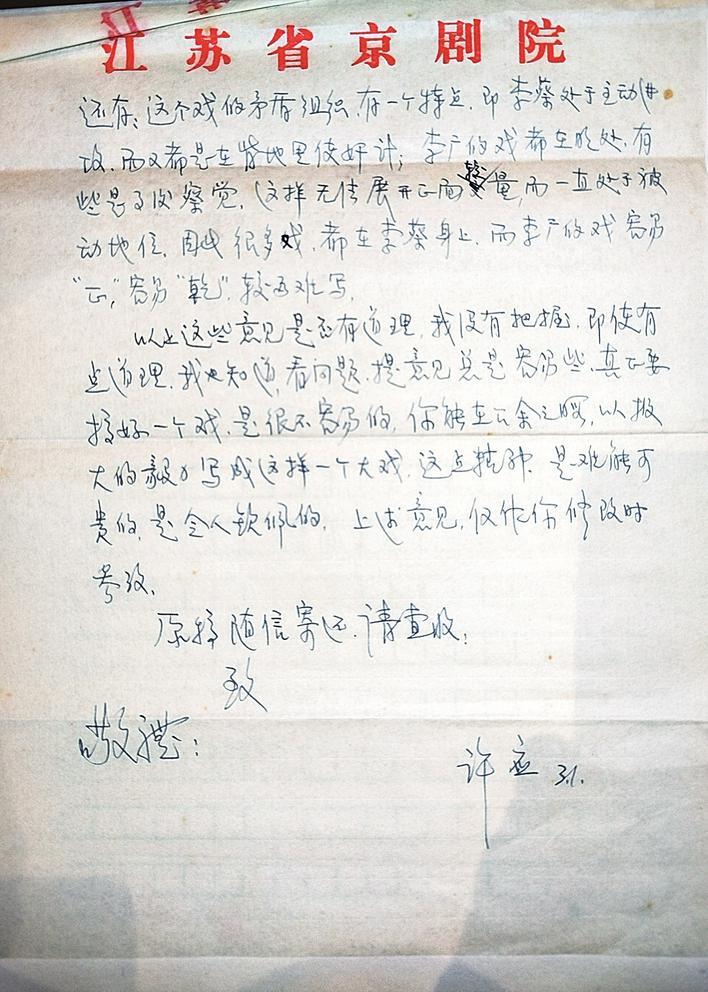 江苏省京剧院
还有：这个戏的矛盾组织，有一个特点，即李蔡处于主动进
攻，而又都是在背地里使奸计；李广的戏都在明处，有
些是了没察觉，这样无法展开正面较量，而一直处于被
动地位，因此很多戏，都在李蔡身上，而李广的戏容易
“正”，容易“乾”，较为难写。
以上这些意见是否有道理，我没有把握，即使有
点道理，我也知道，看问题，提意见总是容易些，真正要
搞好一个戏，是很不容易的，你能在公余之暇，以极
大的毅力写成这样一个大戏，这点精神，是难能可
贵的，是令人钦佩的，上述意见，仅作你修改时
参考。
原稿随信寄还，请查收；
致
敬礼：
许应 31.